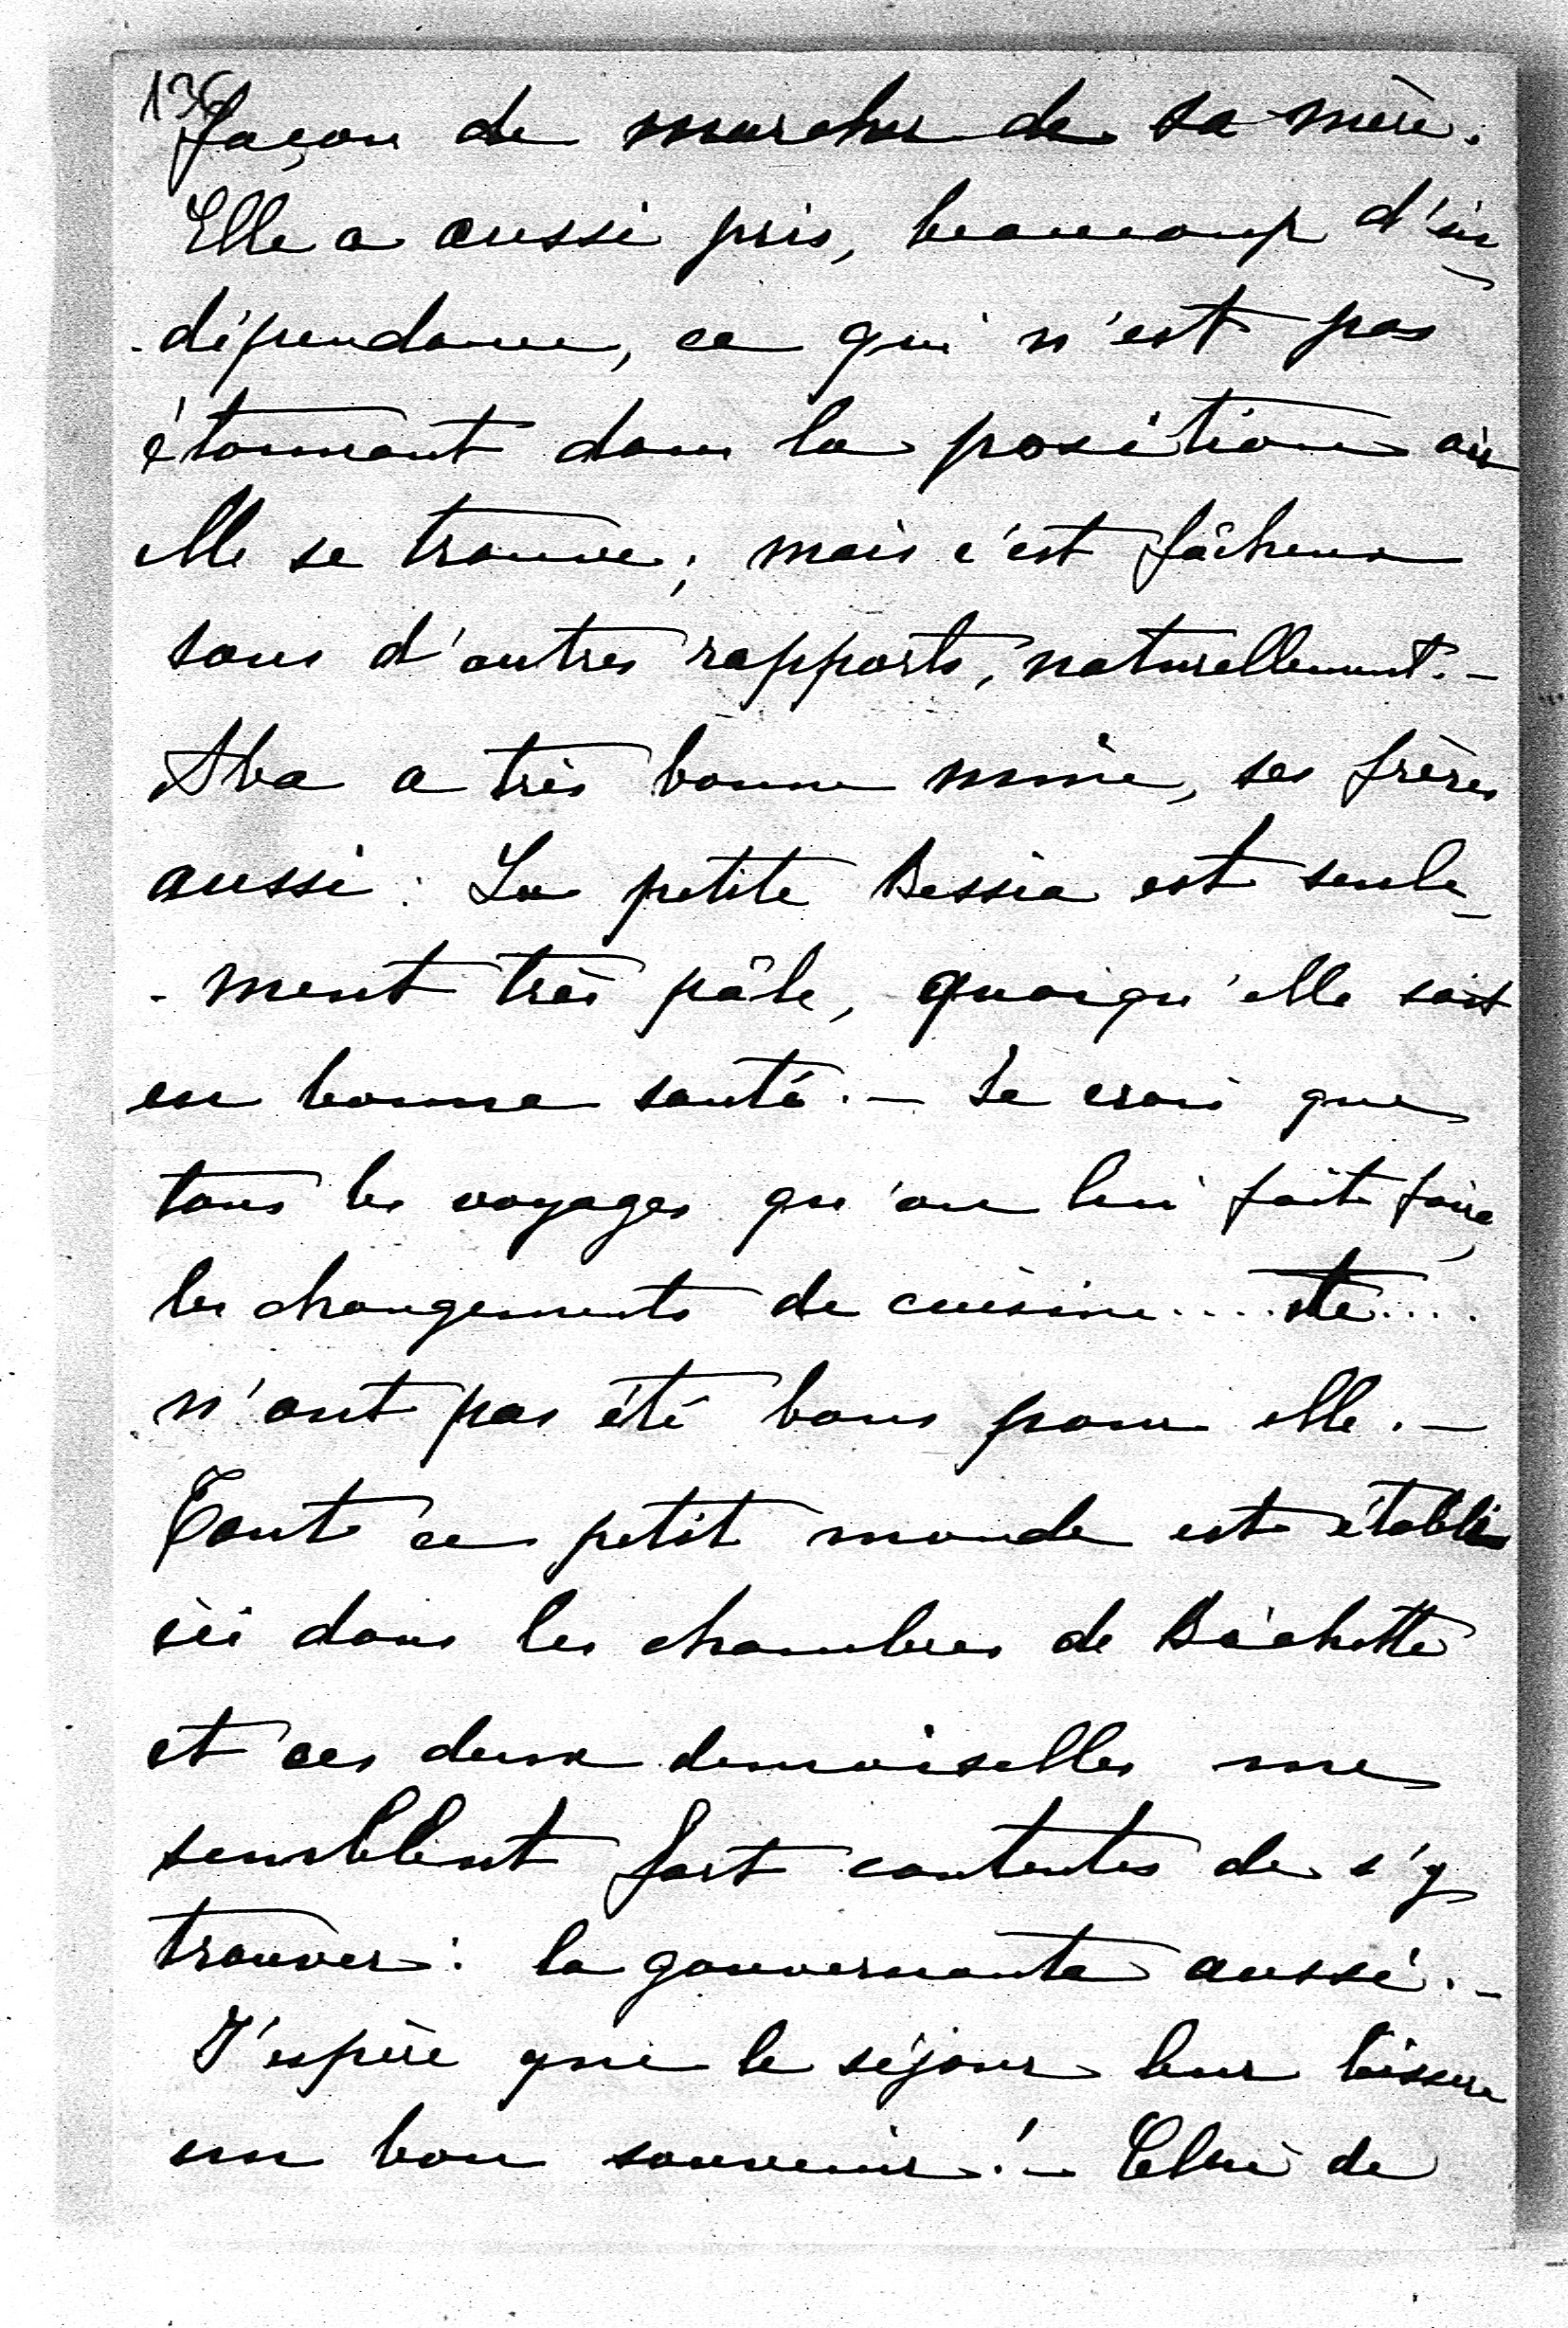 136
façon de marcher de sa mère.
Elle a aussi pris, beaucoup d'in-
-dépendance, ce qui n'est pas
étonnant dans la position où
elle se trouve; mais c'est fâcheux
sous d'autres rapports, naturellement. -
Aba a très bonne mine, ses frères
aussi: La petite Bessia est seule-
-ment très pâle, quoiqu'elle soit
en bonne santé. - Je crois que
tous les voyages qu'on lui fait faire,
les changements de cuisine.... etc....
n'ont pas été bons pour elle. -
Tout ce petit monde est établi
ici dans les chambres de Béchotte
et ces deux demoiselles me
semblent fort contentes de s'y
trouver: la gouvernante aussi. -
J'espère que le séjour leur laissera
un bon souvenir! - Celui de